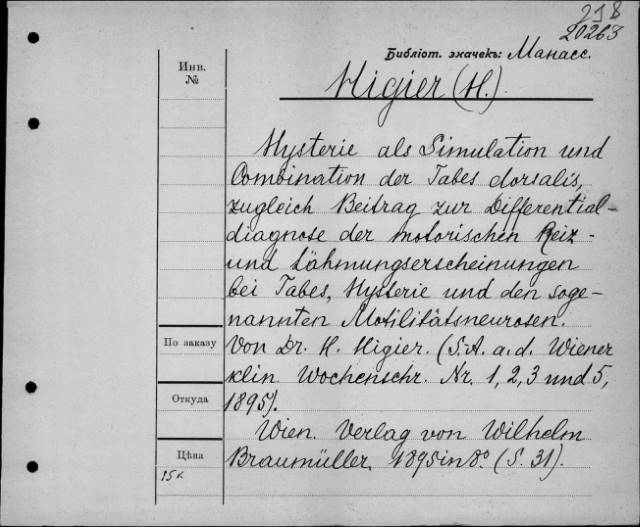 218
20263
Библіот. значекъ: Манасс.
Инв.
№
Higier (H.).
Hysterie als Simulation und
Combination der Tabes dorsalis,
zugleich Beitrag zur Differential-
diagnose der motorischen Reiz-
und Lähmungserscheinungen
bei Tabes, Hysterie und den soge-
nannten Motilitätsneurosen.
По заказу
Von Dr. H. Higier. (S.A. a. d. Wiener
klin. Wochenschr. Nr. 1, 2, 3 und 5,
Откуда
1895).
Wien. Verlag von Wilhelm
Цѣна
Braumüller, 1895 in 8º (S. 31).
15 к.